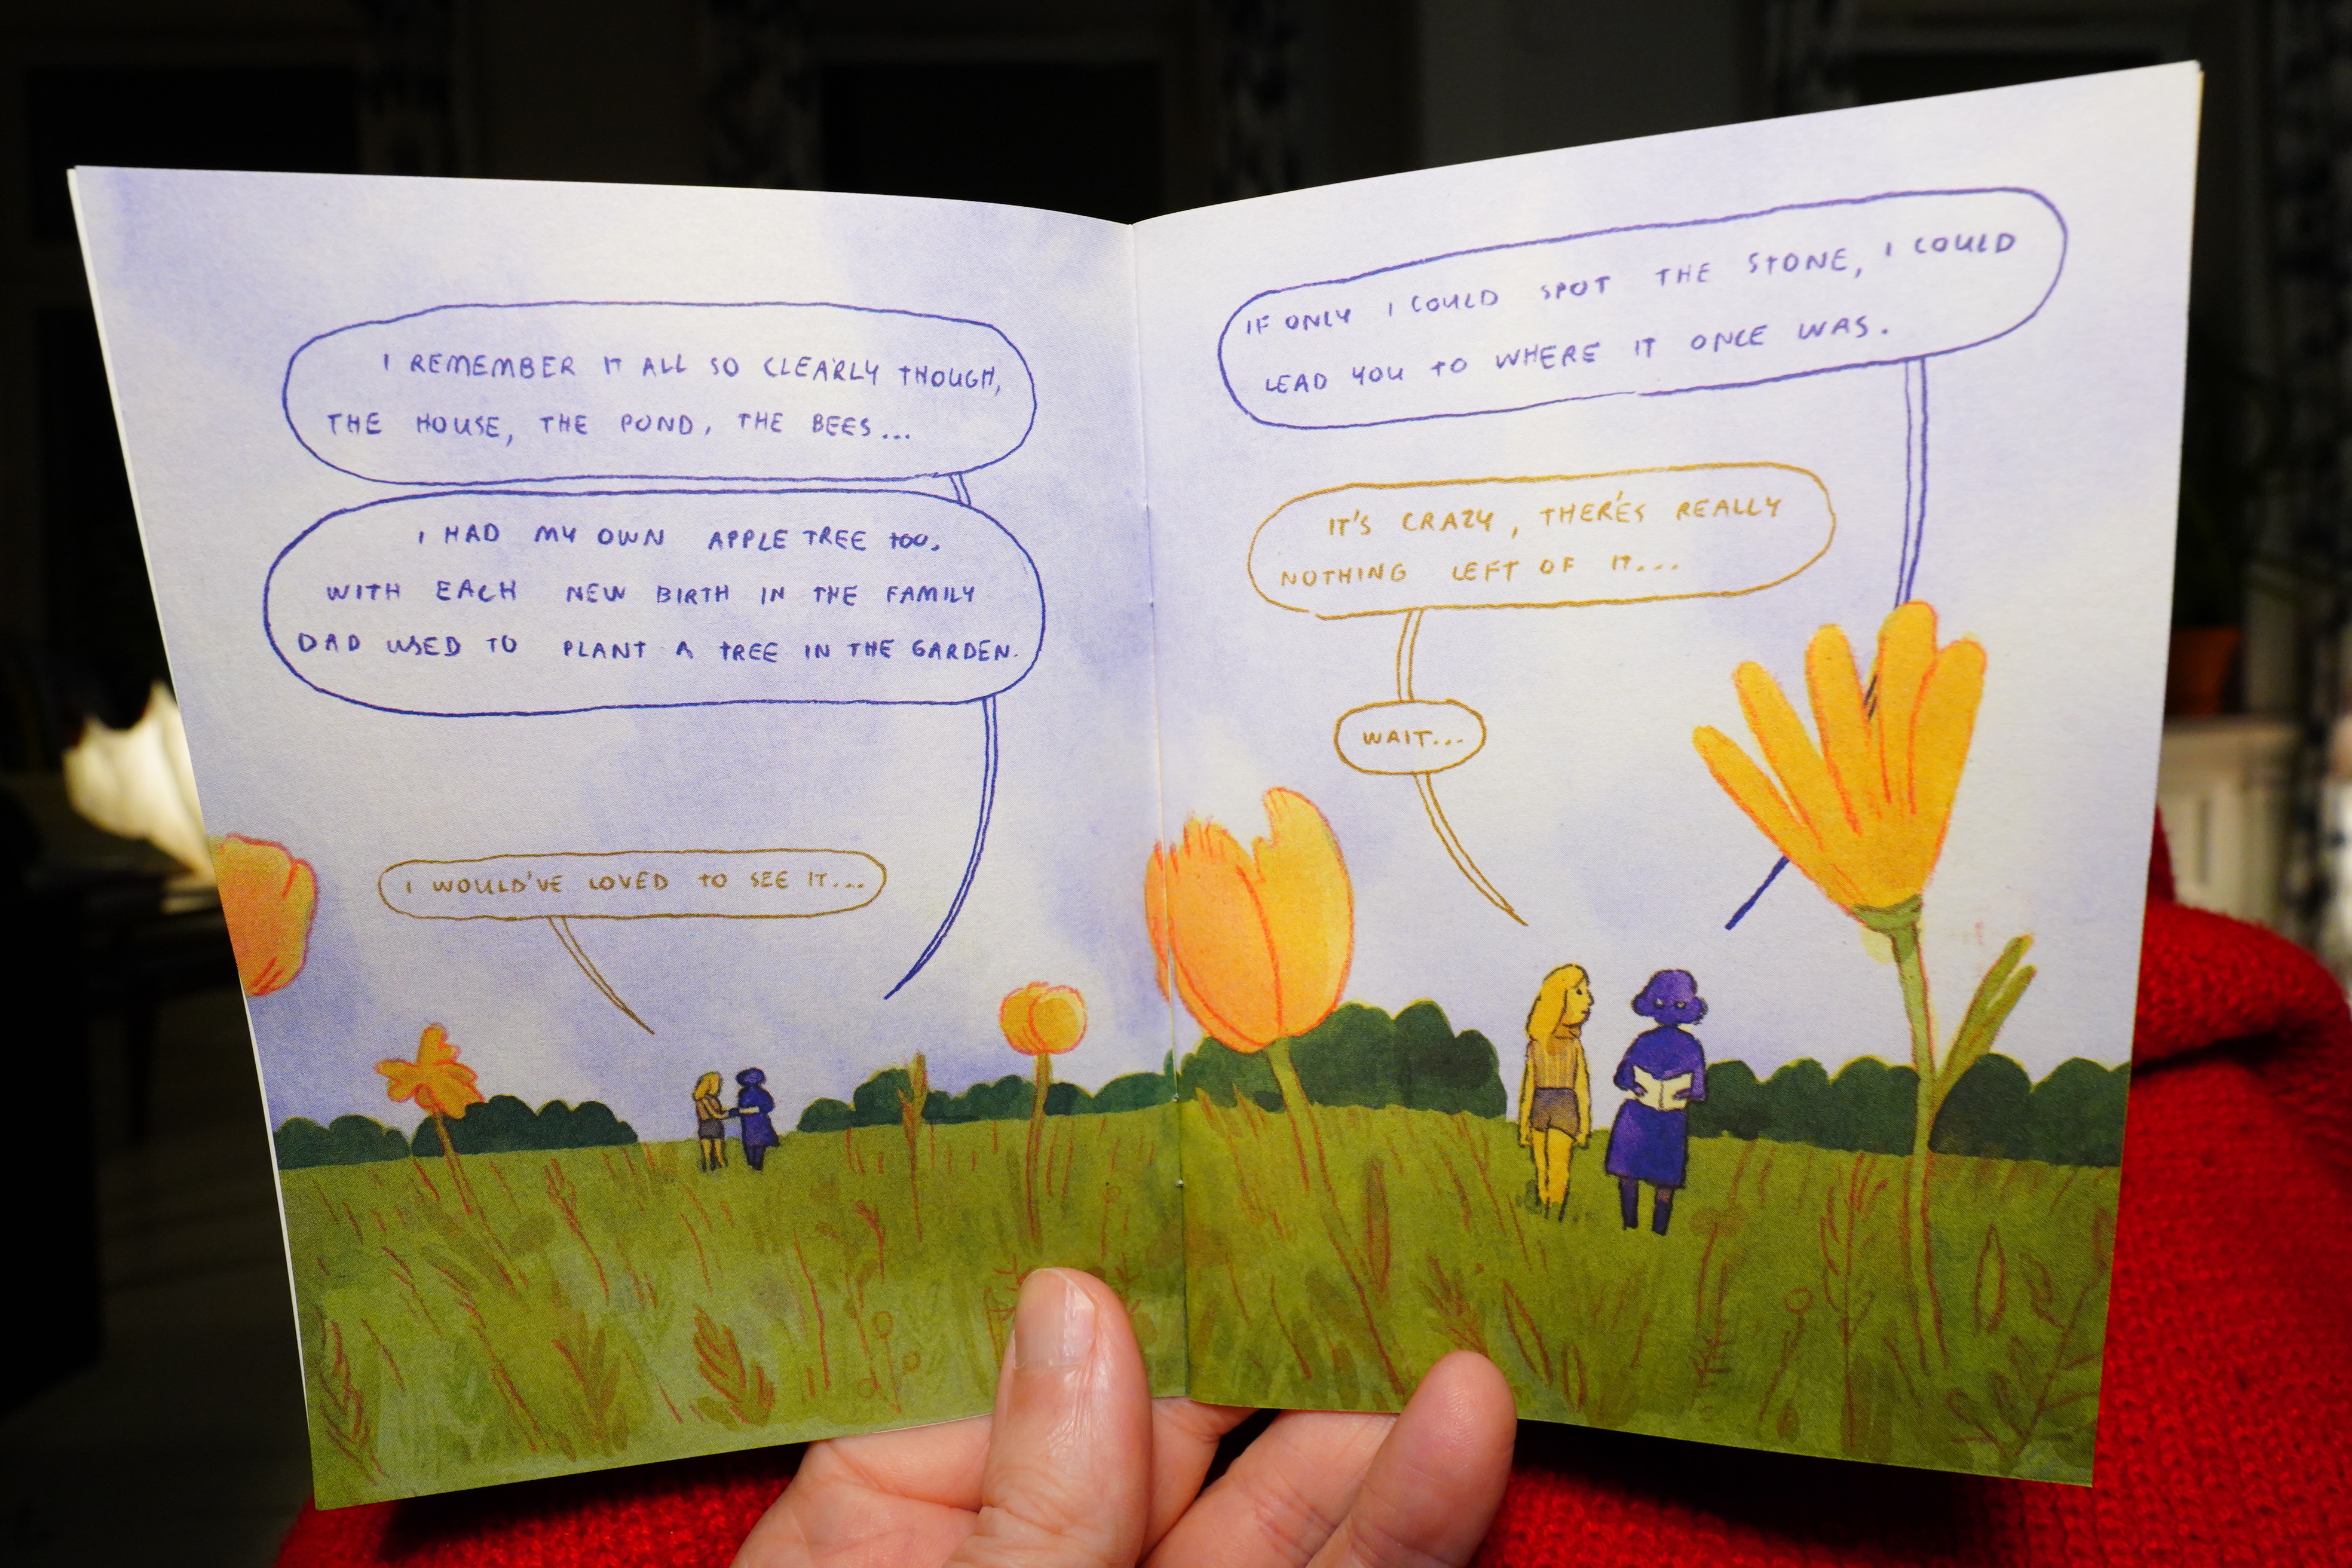 I REMEMBER IT ALL SO CLEARLY THOUGH,
THE HOUSE, THE POND, THE BEES...
I HAD MY OWN APPLE TREE TOO.
WITH EACH NEW BIRTH IN THE FAMILY
DAD USED TO PLANT A TREE IN THE GARDEN.
I WOULD'VE LOVED TO SEE IT...
IF ONLY I COULD SPOT THE STONE, I COULD
LEAD YOU TO WHERE IT ONCE WAS.
IT'S CRAZY, THERE'S REALLY
NOTHING LEFT OF IT...
WAIT...